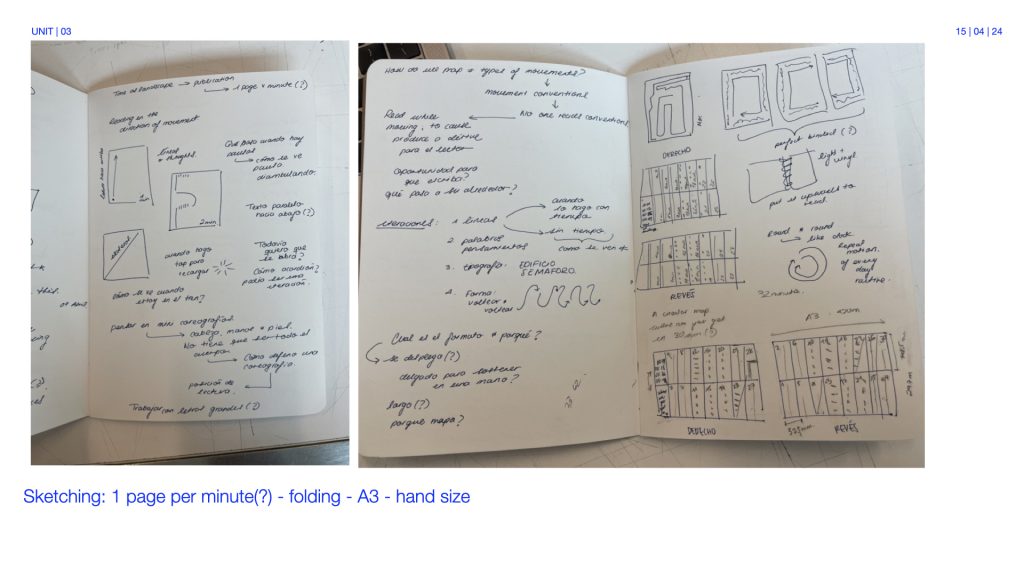 UNIT | 03
15 | 04 | 24
landscape → publication
→ 1 page x minute (?)
Reading in the
direction of movement
lineal
thoughts
Qué pasa cuando hay
pausas
→ cómo se ve
pausa
diambulando.
2min
Texto paralelo
hacia abajo (?)
cuando hago
tap para
recargar
Todavía
quiero que
se abra?
Cómo acordión?
podría ser una
iteración.
Cómo se ve cuando
estoy en el tren?
pensar en mini coreografías
→ cabeza, manos + pies.
No tiene que ser todo el
cuerpo
→ Cómo defino una
coreografía.
posición de
lectura.
Trabajar con letras grandes (?)
How do we map + types of movements?
↓
movement conventions
↓
No one reads conventions
Read while
moving, to cause
produce a
para el lector
Oportunidad para
que escriba?
qué pasa a su alrededor?
iteraciones: 1 lineas
cuando
lo hago con
tiempo
sin tiempo
como se ven
2. palabras
pensamientos
3. tipografía: EDIFICIO
SEMAFORO.
4. Forma:
voltear +
voltear
Cual es el formato + porqué?
se despliega (?)
delgado para sostener
en una mano?
largo (?)
porque mapa?
perfect binded (?)
DERECHO
light +
put it upwards to
read.
REVÉS
Round + round
like clock
Repeat
motion
of every
day
routine.
32 minuta.
A circular map
in 30 min (?)
A3
DERECHO
REVÉS
Sketching: 1 page per minute(?) - folding - A3 - hand size